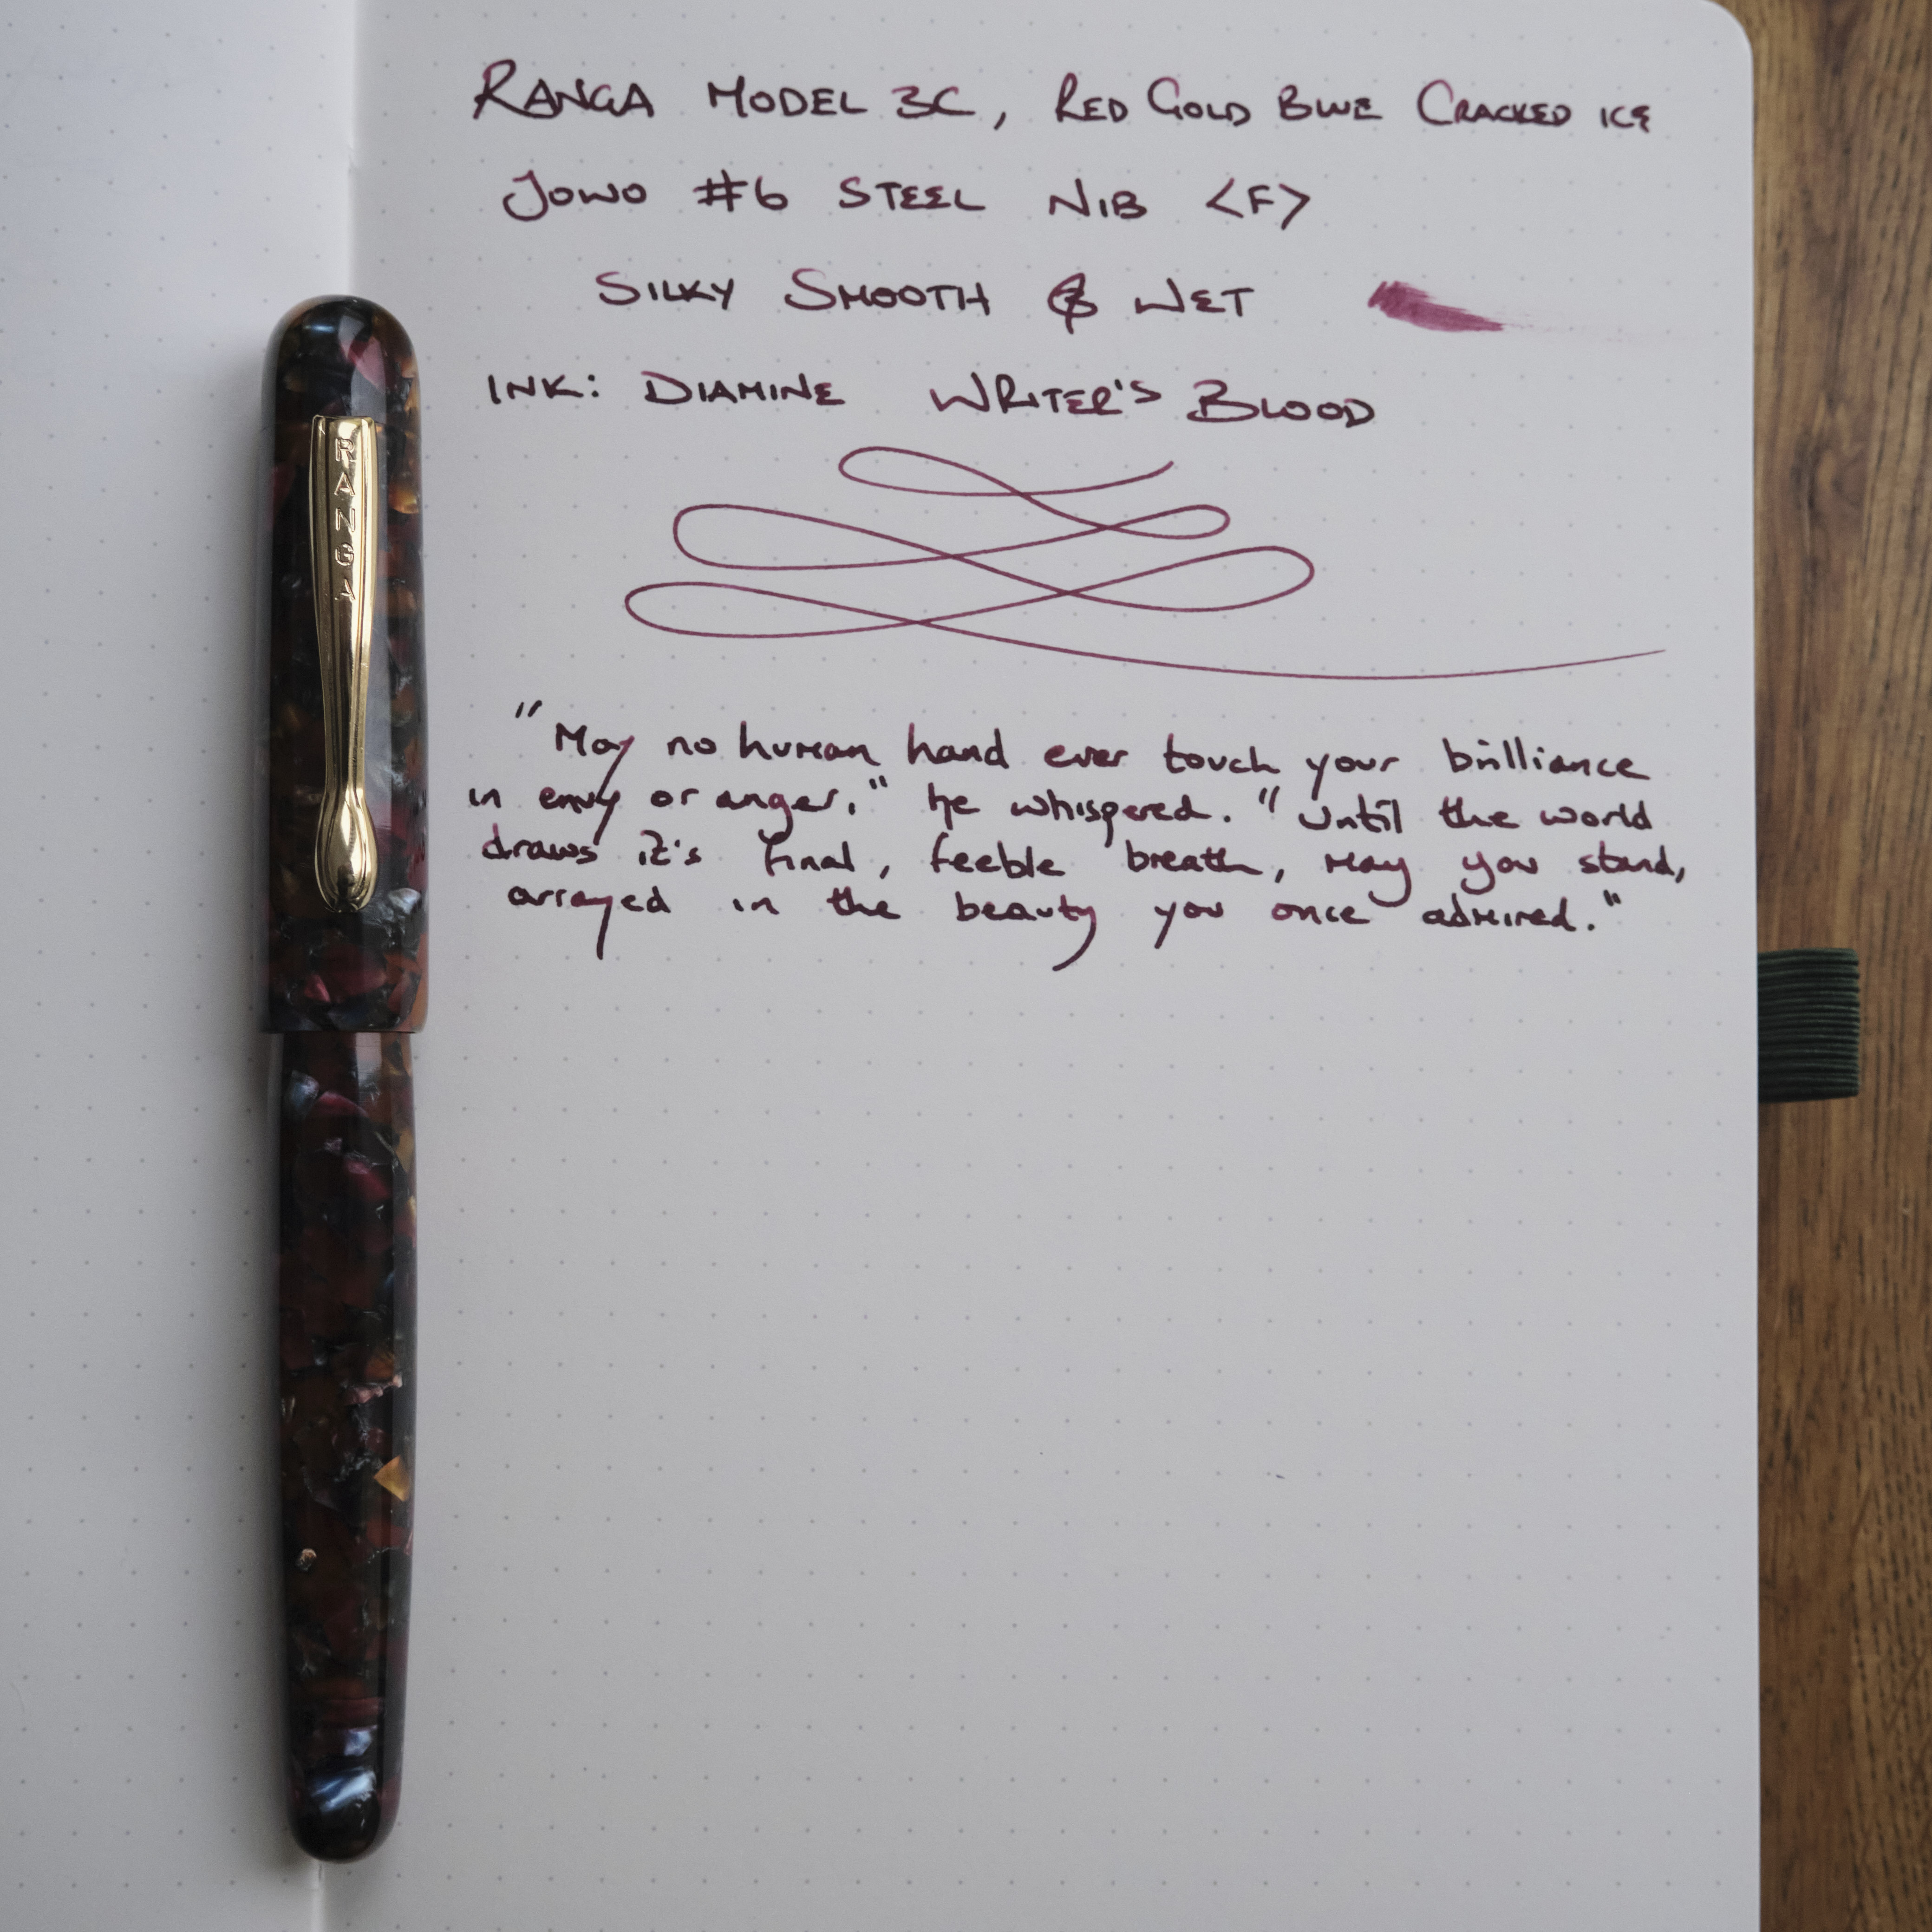 RANGA
RANGA MODEL 3C, RED GOLD BLUE CRACKED ICE
JOWO #6 STEEL NIB <F>
SILKY SMOOTH & WET
INK: DIAMINE WRITER'S BLOOD
"May no human hand ever touch your brilliance
in envy or anger," he whispered. "Until the world
draws it's final, feeble breath, may you stand,
arrayed in the beauty you once admired."